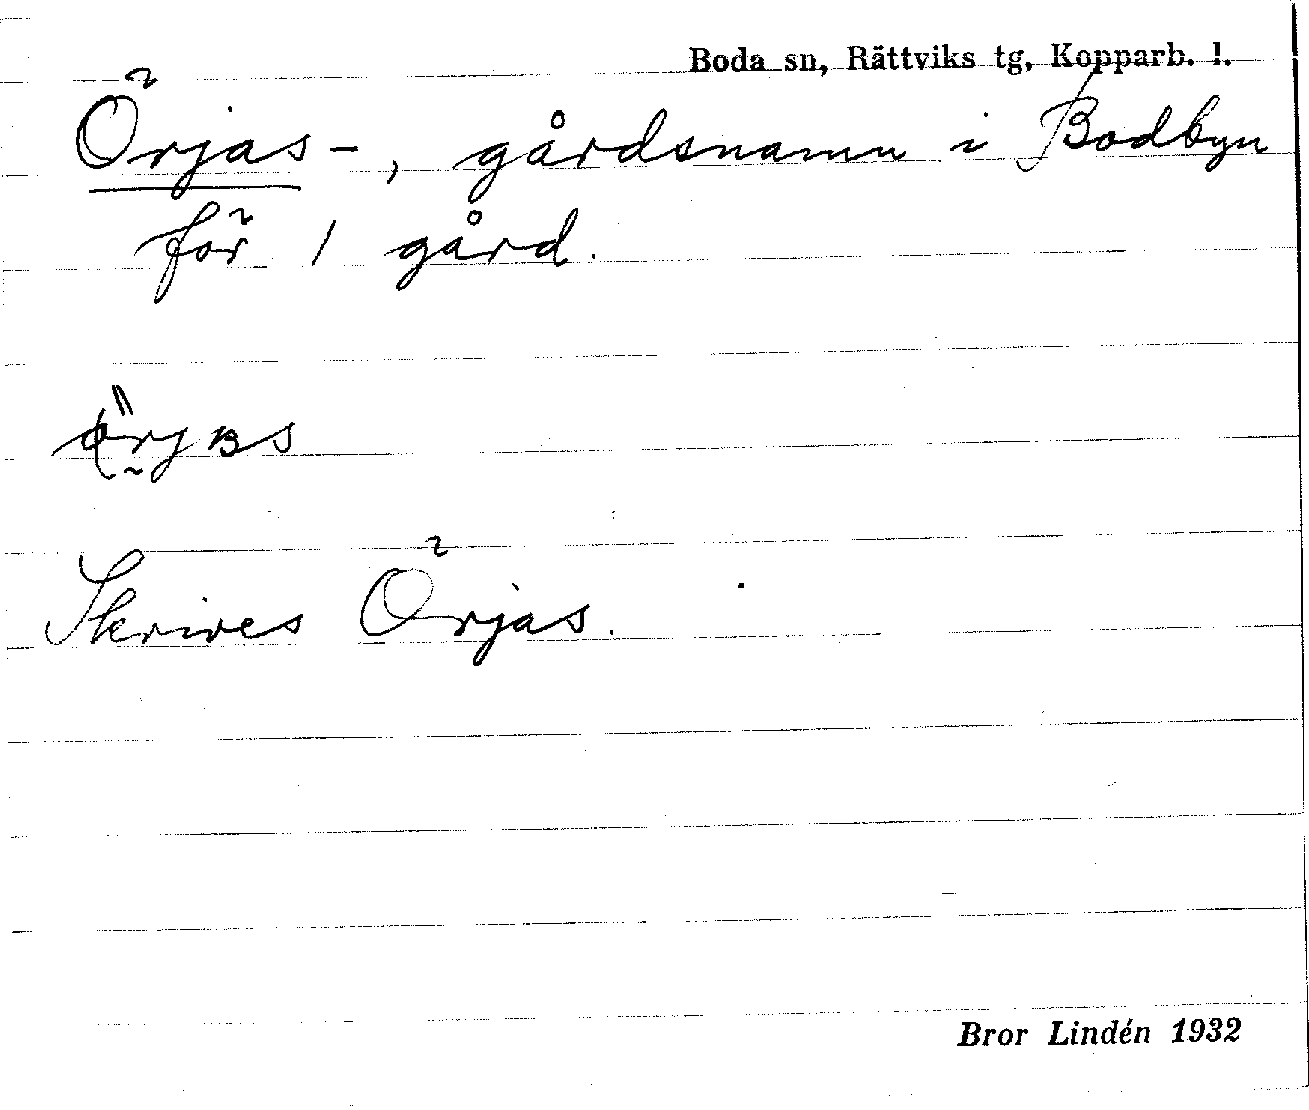 Boda sn, Rättviks tg, Kopparb. l.
Örjas-, gårdsnamn i Bodbyn
för 1 gård.
Skrives Örjas.
Bror Lindén 1932